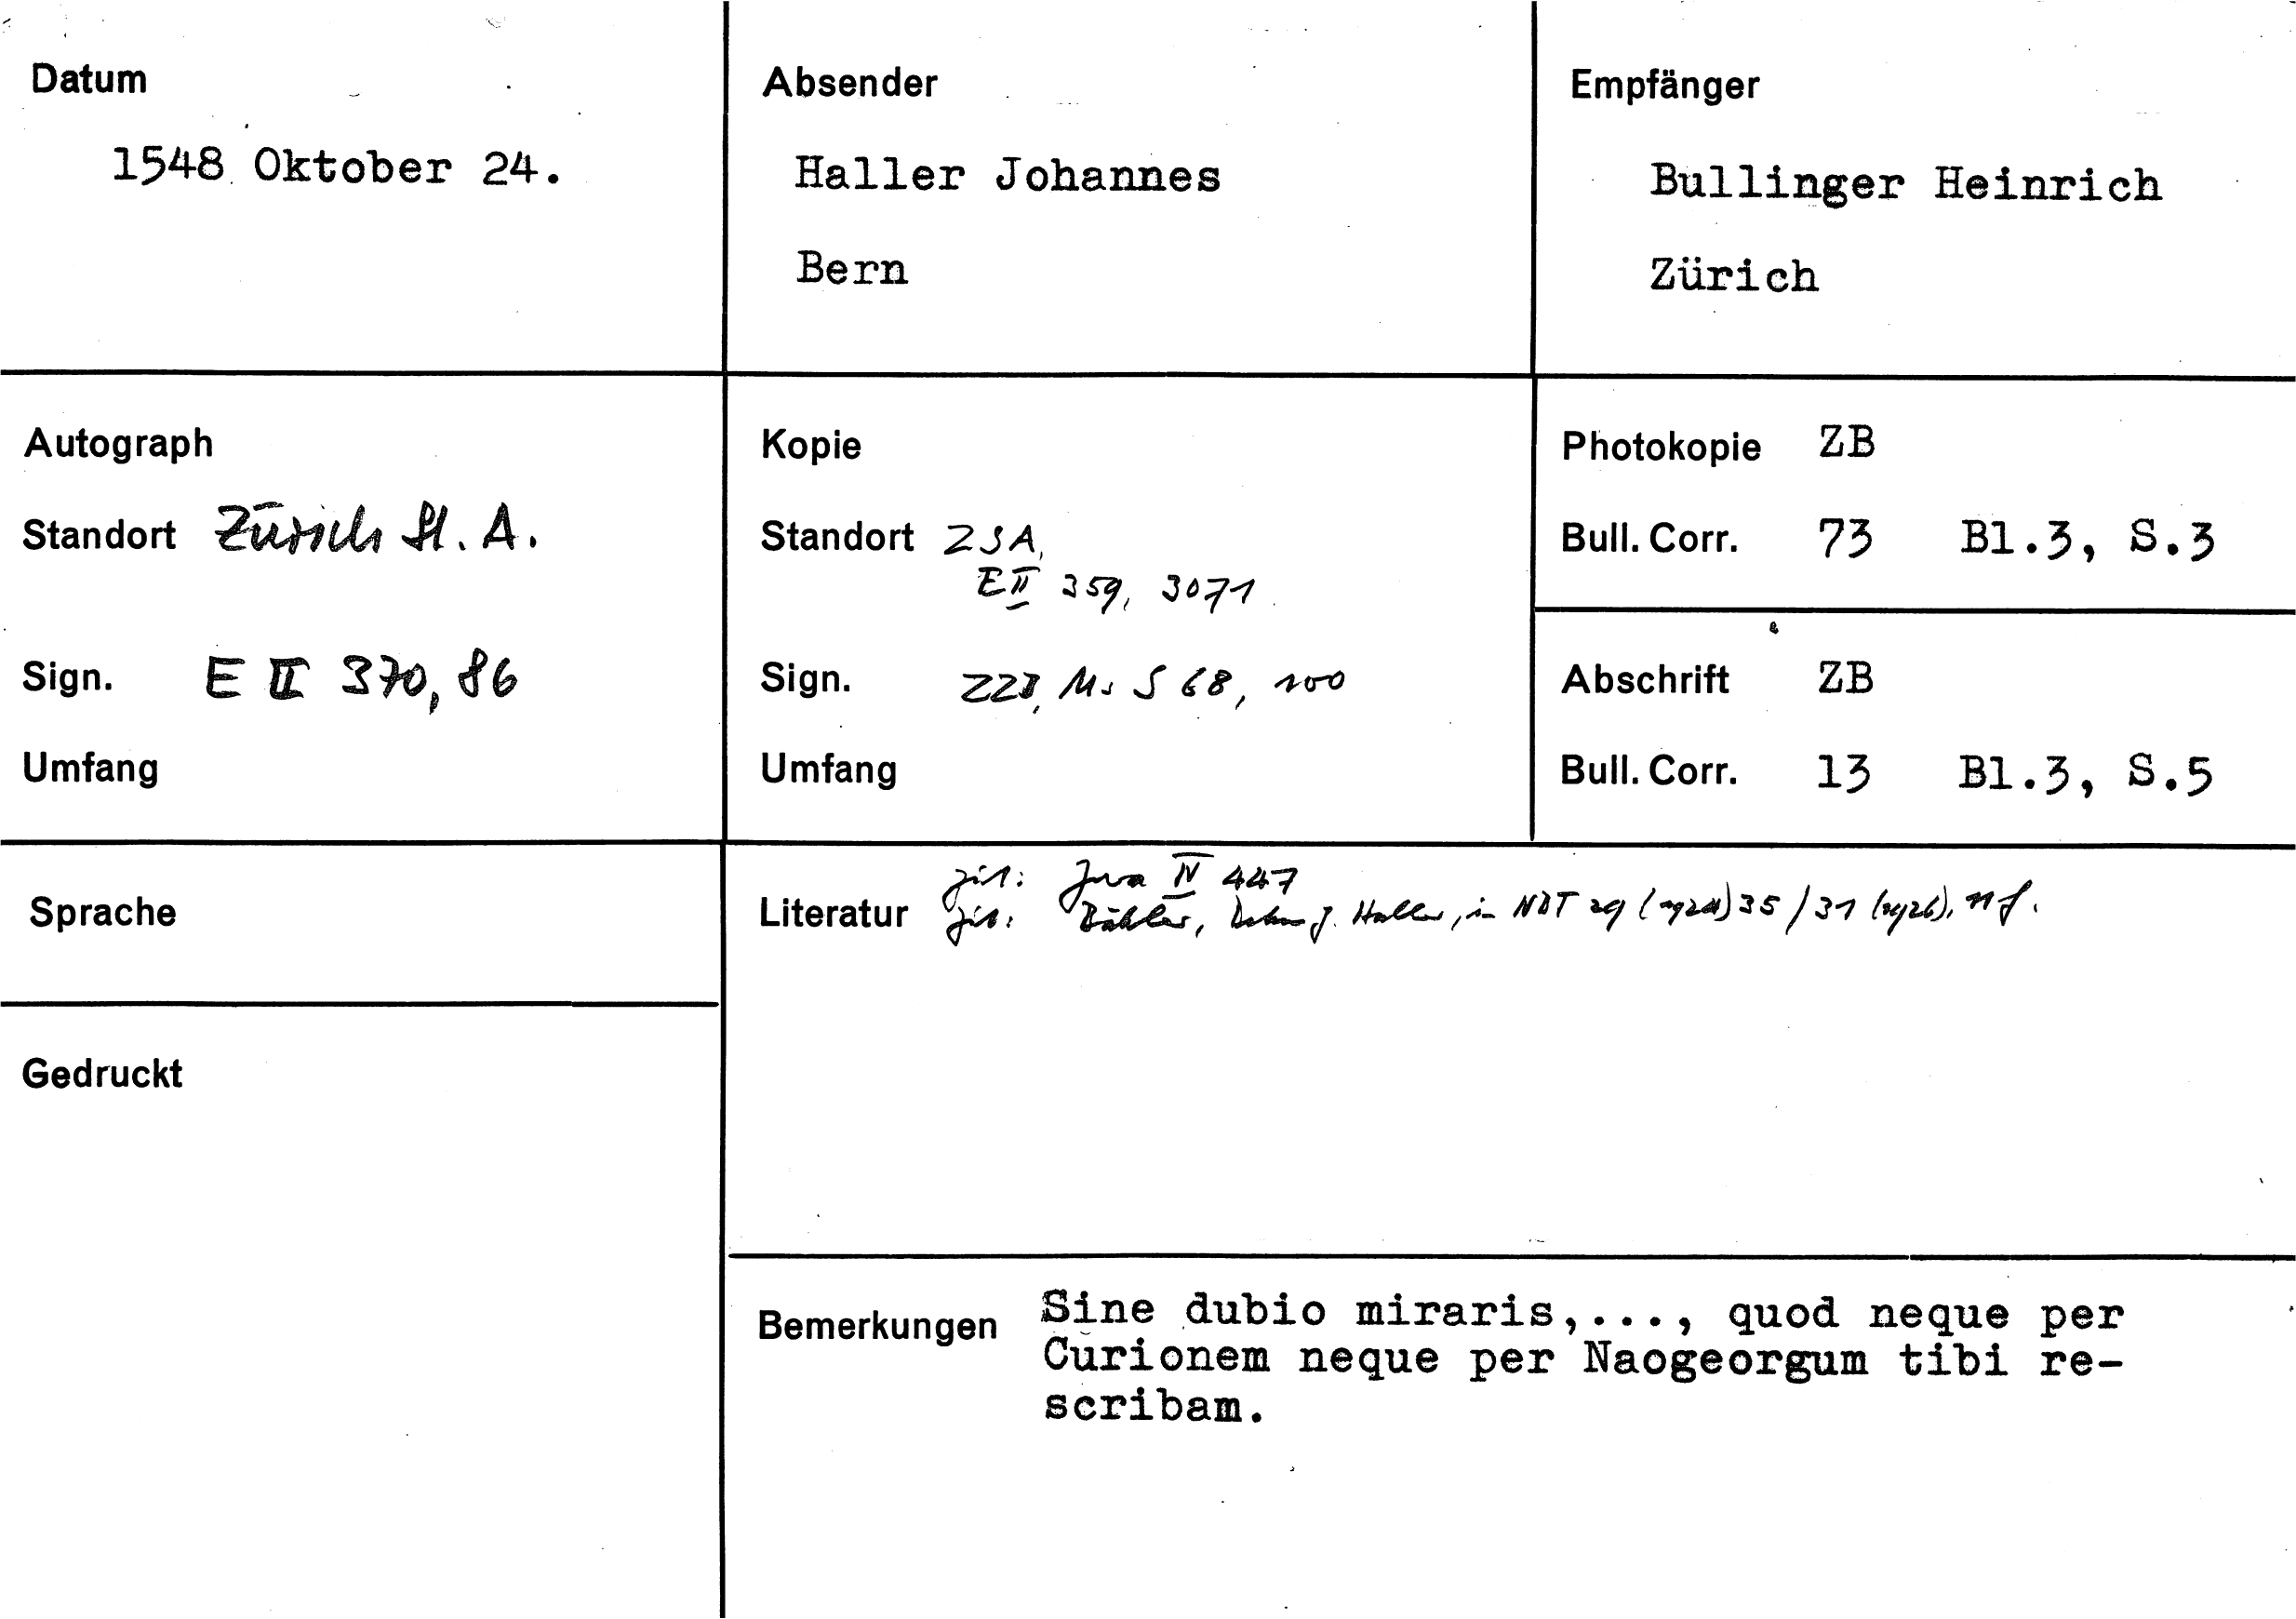 Datum
1548 Oktober 24.
Absender
Haller Johannes
Bern
Empfänger
Bullinger Heinrich
Zürich
Autograph
Standort Zürich St. A.
Sign. E II 370, 86
Umfang
Kopie
Standort ZSA,
E II 359, 3071
Sign. ZZB, Ms S 68, 100
Umfang
Photokopie ZB
Bull. Corr. 73 Bl.3, S.3
Abschrift ZB
Bull. Corr. 13 Bl.3, S.5
Sprache
Gedruckt
zit: IV 447
Literatur zit: Bähler, J. Haller, in NBT 29 35/31 (1926), 11 f.
Bemerkungen Sine dubio miraris,..., quod neque per
Curionem neque per Naogeorgum tibi re-
scribam.